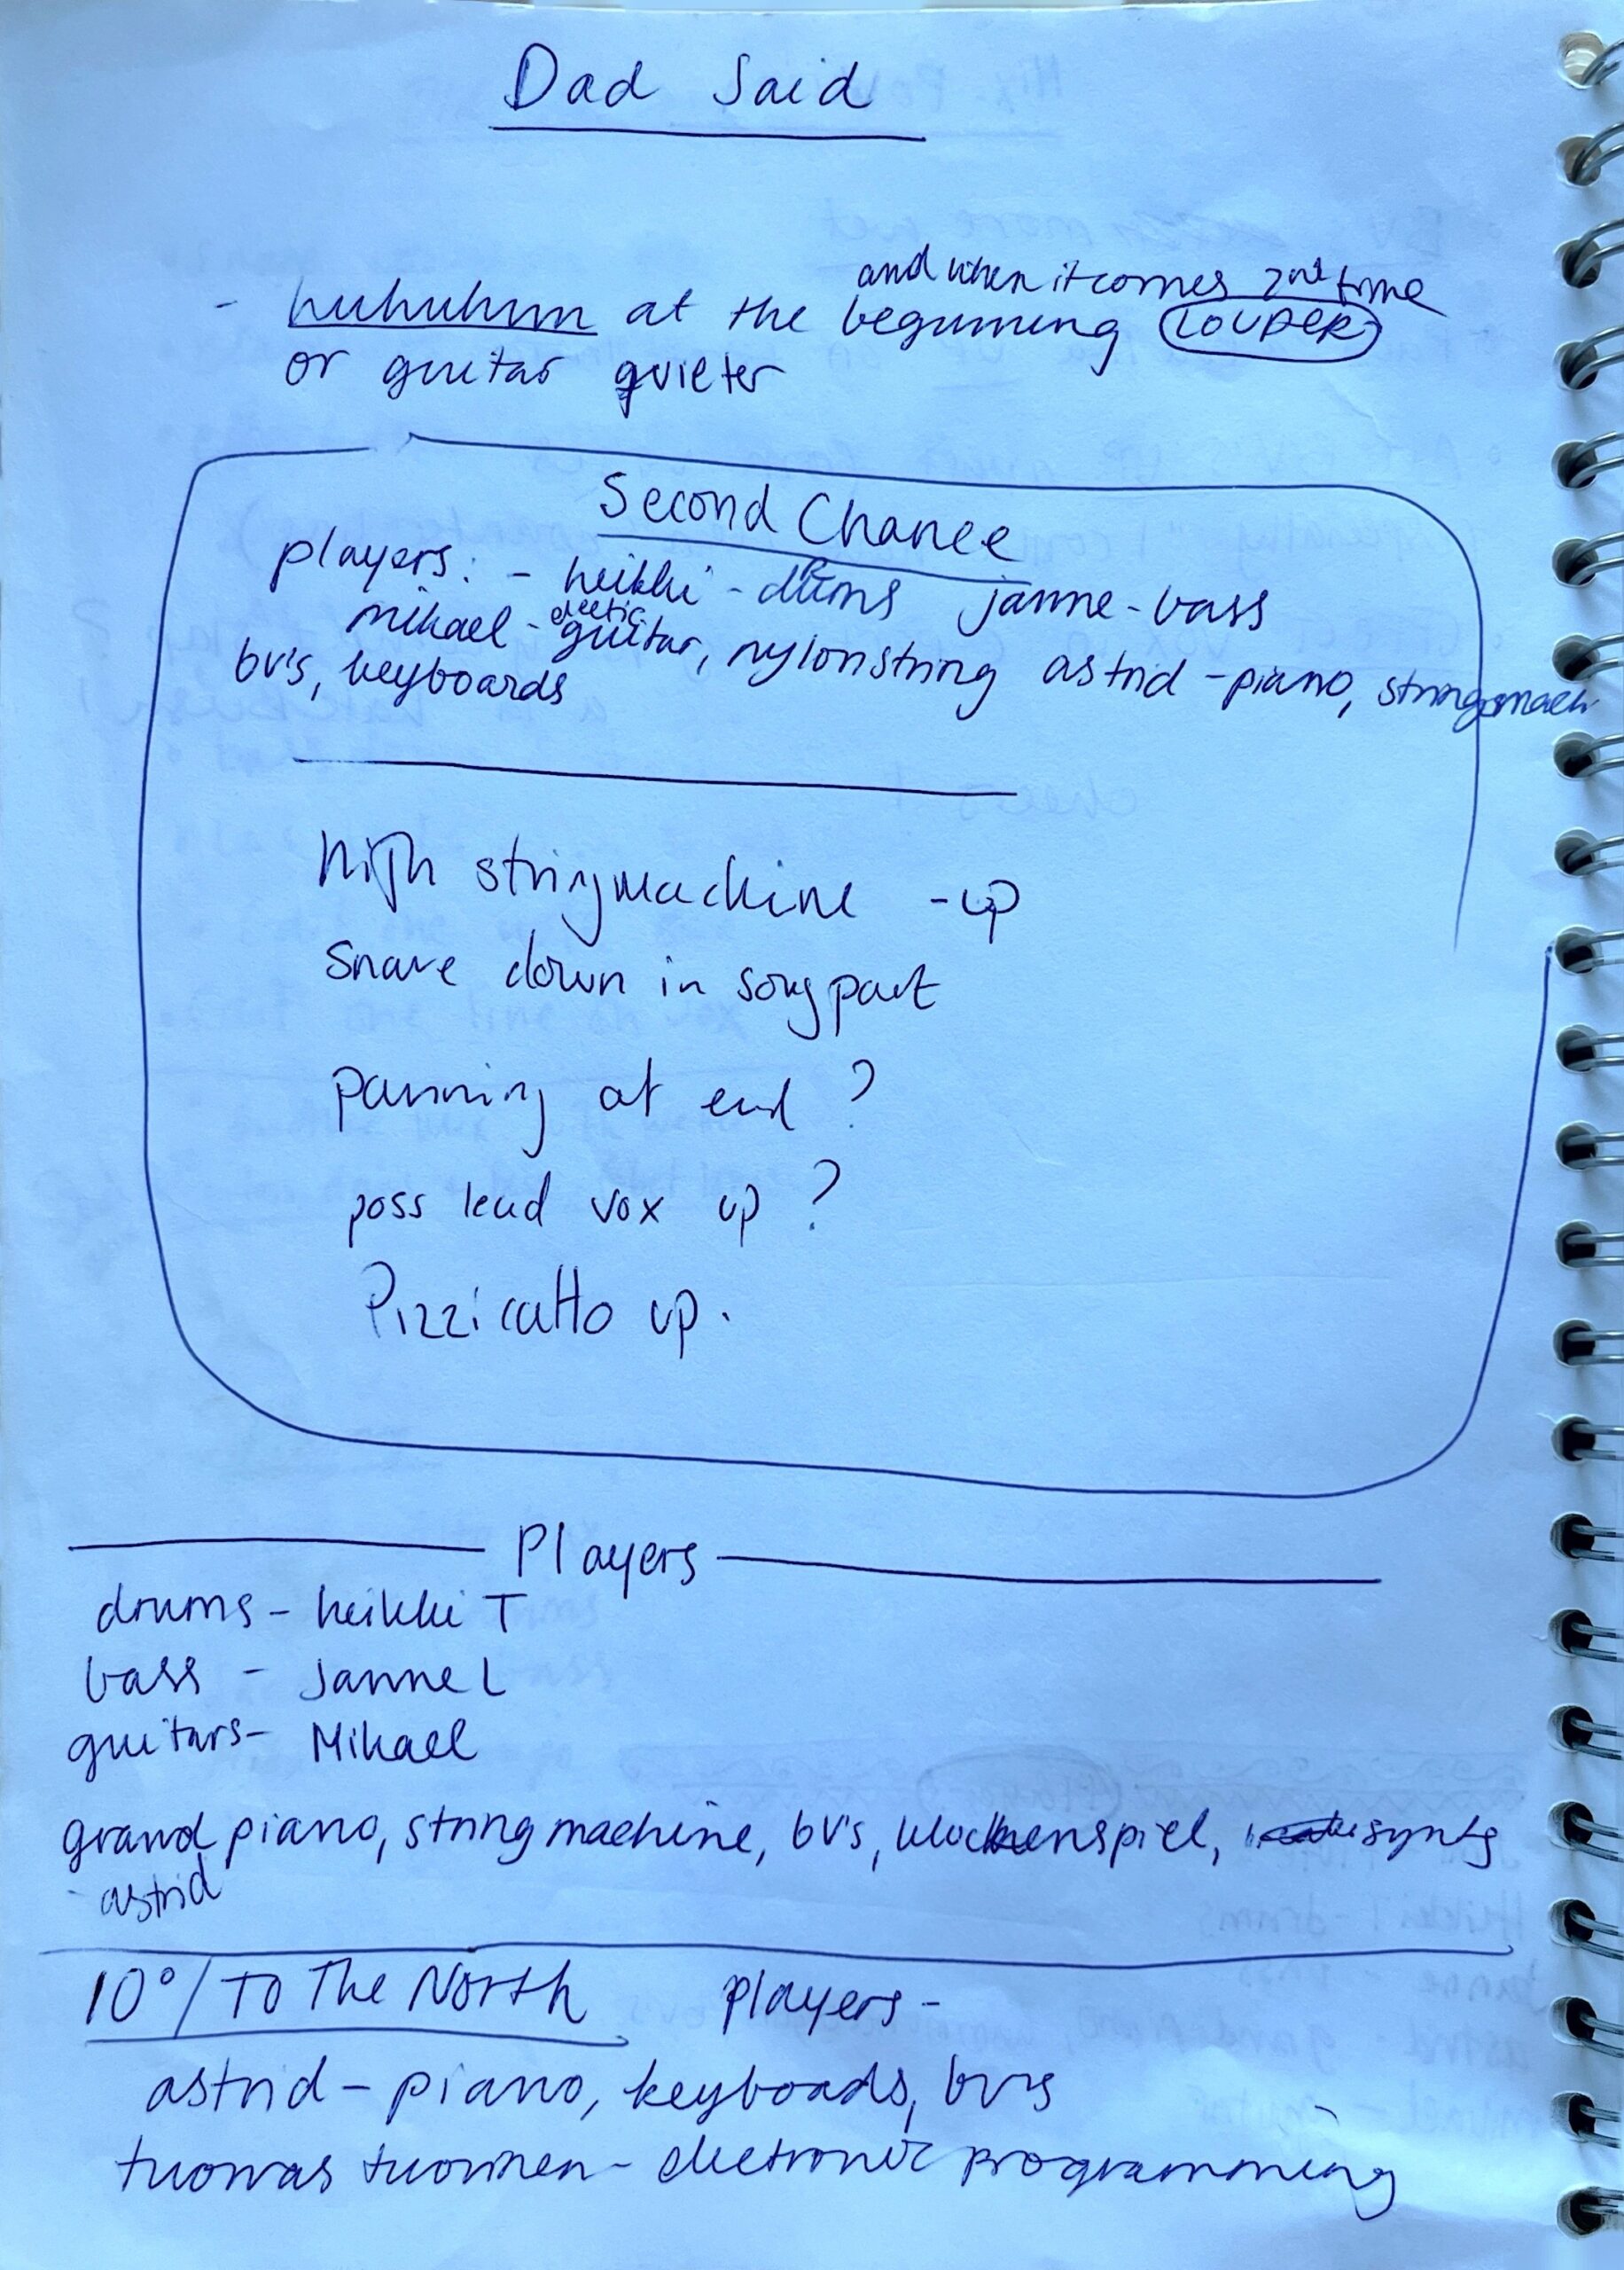 Dad Said
and when it comes 2nd time
- huhuhum at the beginning LOUDER
or guitar quieter
Second Chance
players: - heikki - drums janne - bass
mikael - electric guitar, nylonstring astrid - piano, stringsmach
bv's, keyboards
high stringmachine - up
snare down in song part
panning at end ?
poss lead vox up ?
Pizzicatto up.
Players
drums - heikki T
bass - Janne L
guitars - Mikael
grand piano, string machine, bv's, klockenspiel, synths
- astrid
10°/ To The North players -
astrid - piano, keyboads, bvs
tuomas tuominen - electronic programming